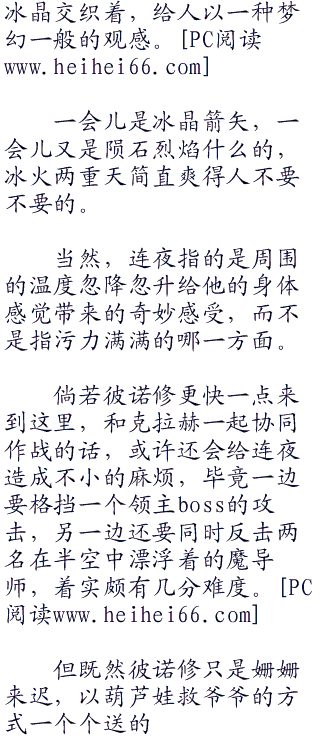 冰晶交织着，给人以一种梦
幻一般的观感。[PC阅读
www.heihei66.com]
一会儿是冰晶箭矢，一
会儿又是陨石烈焰什么的，
冰火两重天简直爽得人不要
不要的。
当然，连夜指的是周围
的温度忽降忽升给他的身体
感觉带来的奇妙感受，而不
是指污力满满的哪一方面。
倘若彼诺修更快一点来
到这里，和克拉赫一起协同
作战的话，或许还会给连夜
造成不小的麻烦，毕竟一边
要格挡一个领主boss的攻
击，另一边还要同时反击两
名在半空中漂浮着的魔导
师，着实颇有几分难度。[PC
阅读www.heihei66.com]
但既然彼诺修只是姗姗
来迟，以葫芦娃救爷爷的方
式一个个送的